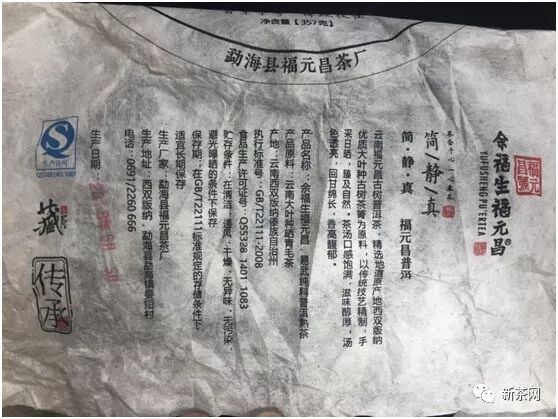 净含量【357克】
勐海县福元昌茶厂
余福生福元昌®
YUFUSHENG PU'ERTEA
简/静/真
简·静·真 福元昌普洱
云南福元昌古树普洱茶、精选地道原产地西双版纳
优质大叶种古树茶菁为原料，以传统技艺精制，手
采日晒，臻及自然。茶汤口感饱满，滋味醇厚，汤
色透亮，回甘绵长，香高馥郁。
产品名称：余福生福元昌，易武纯料普洱熟茶
产品原料：云南大叶种晒青毛茶
产地：云南西双版纳傣族自治州
执行标准号：GB/T22111-2008
食品生产许可证号：QS5328 1401 1083
贮存条件：在清洁、通风、干燥、无异味、无污染、
避光曝晒的条件下保存。
保存期：在GB/T22111标准规定的存储条件下
适宜长期保存
生产厂家：勐海县福元昌茶厂
生产地址：西双版纳 勐海县勐海镇曼短村
电话：0691/2260 666
生产日期：
生产许可
藏
传承
新茶网